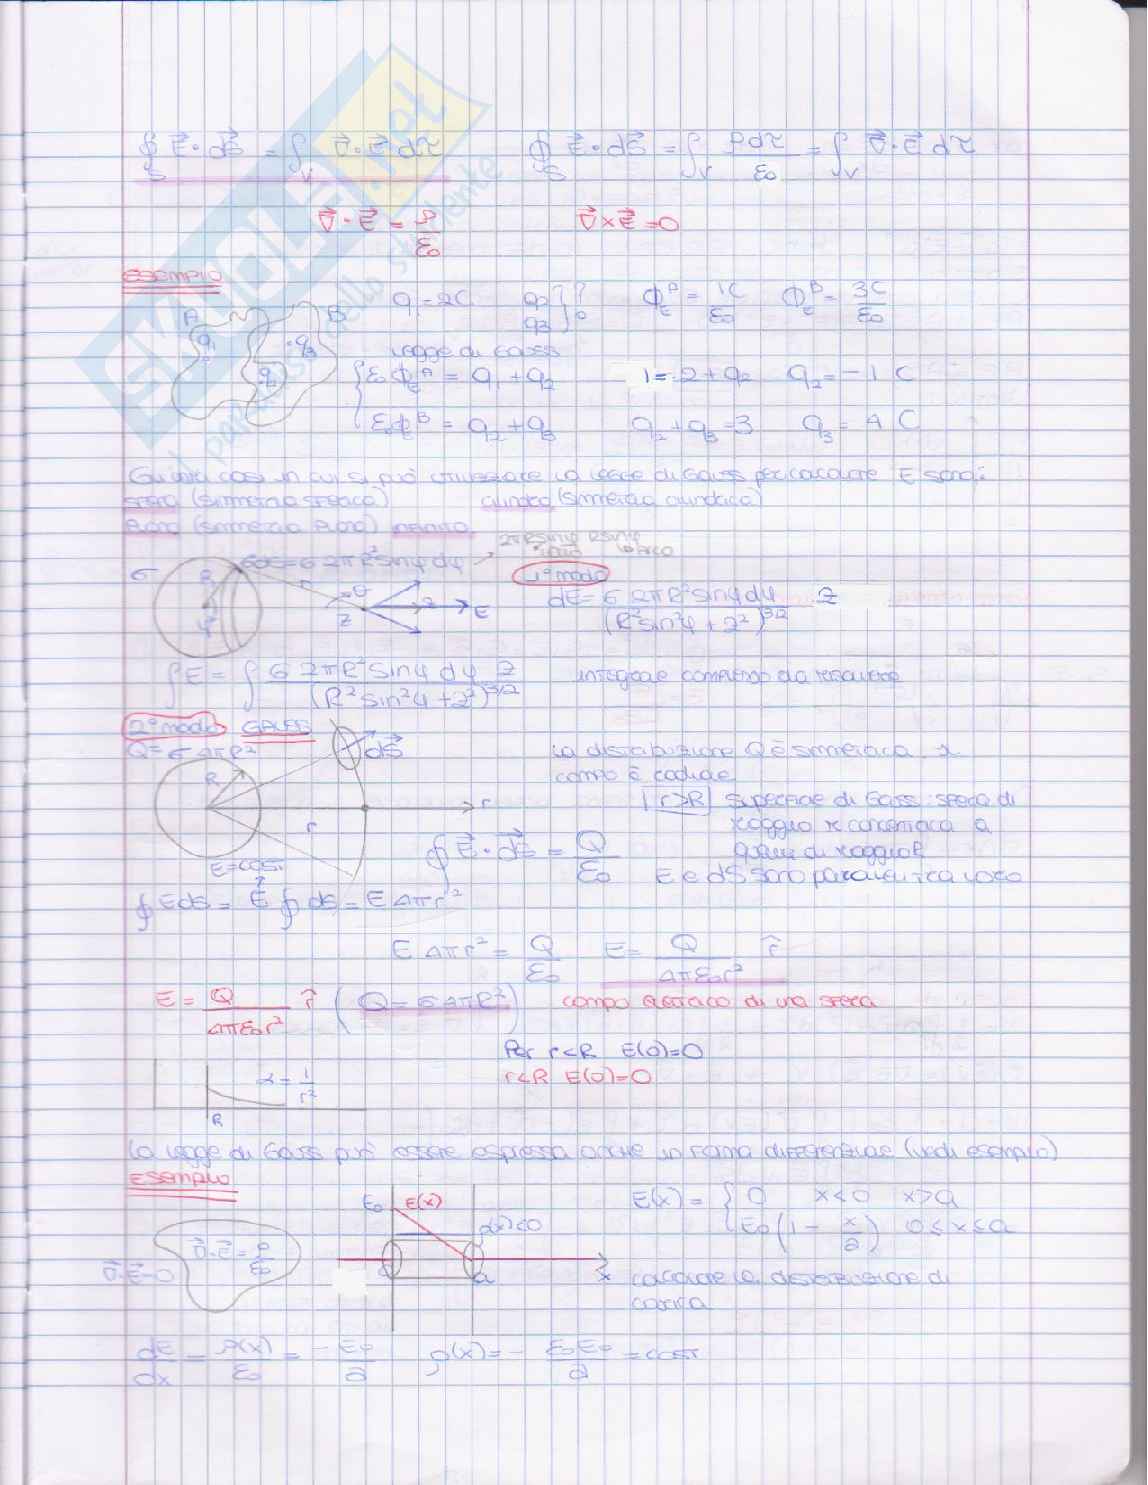 ∮_S E⃗ · dS⃗ = ∫_V ∇⃗ · E⃗ dτ ∮_S E⃗ · dS⃗ = ∫_V ρdτ/ε₀ = ∫_V ∇⃗ · E⃗ dτ
∇⃗ · E⃗ = ρ/ε₀ ∇⃗ × E⃗ = 0
esempio
q₁ = 2C q₂ q₃ } ? Φ_E^A = 1C/ε₀ Φ_E^B = 3C/ε₀
A B q₁ q₃ q₂
legge di Gauss
{ ε₀Φ_E^A = q₁ + q₂ 1 = 2 + q₂ q₂ = -1 C
ε₀Φ_E^B = q₂ + q₃ q₂ + q₃ = 3 q₃ = 4 C
Gli unici casi in cui si può utilizzare la legge di Gauss per calcolare E sono:
sfera (simmetria sferica) cilindro (simmetria cilindrica)
piano (simmetria piana) infinito
2πRsinφ Rsinφ
σ σdS = σ 2πR² sinφ dφ → arco
1° modo
dE = σ 2πR² sinφ dφ / (R² sin²φ + z²)^3/2 z
R θ z E
∫E = ∫ σ 2πR² sinφ dφ z / (R² sin²φ + z²)^3/2 integrale complesso da risolvere
2° modo GAUSS
Q = σ4πR² dS⃗ la distribuzione Q è simmetrica. il
campo è radiale
R r r>R superficie di Gauss: sfera di
raggio r concentrica a
quella di raggio R
∮ E⃗ · dS⃗ = Q/ε₀
E = cost E e dS sono paralleli tra loro
∮ EdS = E ∮ dS = E 4πr²
E 4πr² = Q/ε₀ E = Q/4πε₀r² r̂
E = Q/4πε₀r² r̂ (Q = σ4πR²) campo elettrico di una sfera
Per r<R E(0)=0
r<R E(0)=0
α = 1/r²
R
la legge di Gauss può essere espressa anche in forma differenziale (vedi esempio)
Esempio
E₀ E(x) ρ(x)<0 E(x) = { 0 x<0 x>a
E₀(1 - x/a) 0≤x≤a
∇⃗·E⃗ = ρ/ε₀
∇⃗·E⃗=0 a x calcolare la distribuzione di
carica
dE/dx = ρ(x)/ε₀ = - E₀/a ρ(x) = - ε₀E₀/a = cost
SKUOLA.net